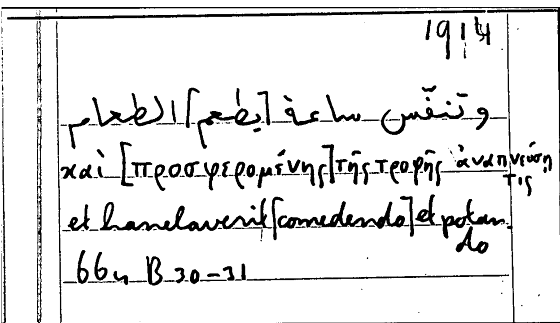 1914
وتنفّس ساعة [يطعم] الطعام
καὶ [προσφερομένης] τῆς τροφῆς ἀναπνεύσῃ
τις
et hanelaverit [comedendo] et potan-
do
664 B 30-31